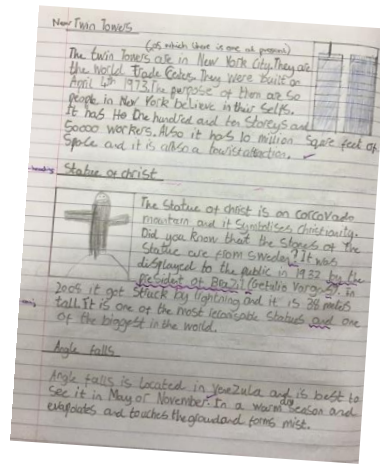 New Twin Towers
(of which there is one at present)
The twin Towers are in New York City. They are
the world Trade Center. They were built on
April 4th 1973. The purpose of them are so
people in New York believe in their selfs.
It has the One hundred and ten storeys and
50000 workers. Also it has 10 million square feet of
space and it is also a tourist attraction.
heading
Statue of christ
The Statue of christ is on corcovado
mountain and it symbolises christianity.
Did you know that the stones of the
Statue are from Sweden? It was
displayed to the public in 1932 by the
president of Brazil (Getulio Vargas). in
2008 it got struck by lightning and it is 38 meters
tall. It is one of the most iconisable statues and one
of the biggest in the world.
Angle falls
Angle falls is located in Venezula and is best to
see it in May or November. In a warm dry season and
evaporates and touches the ground and forms mist.